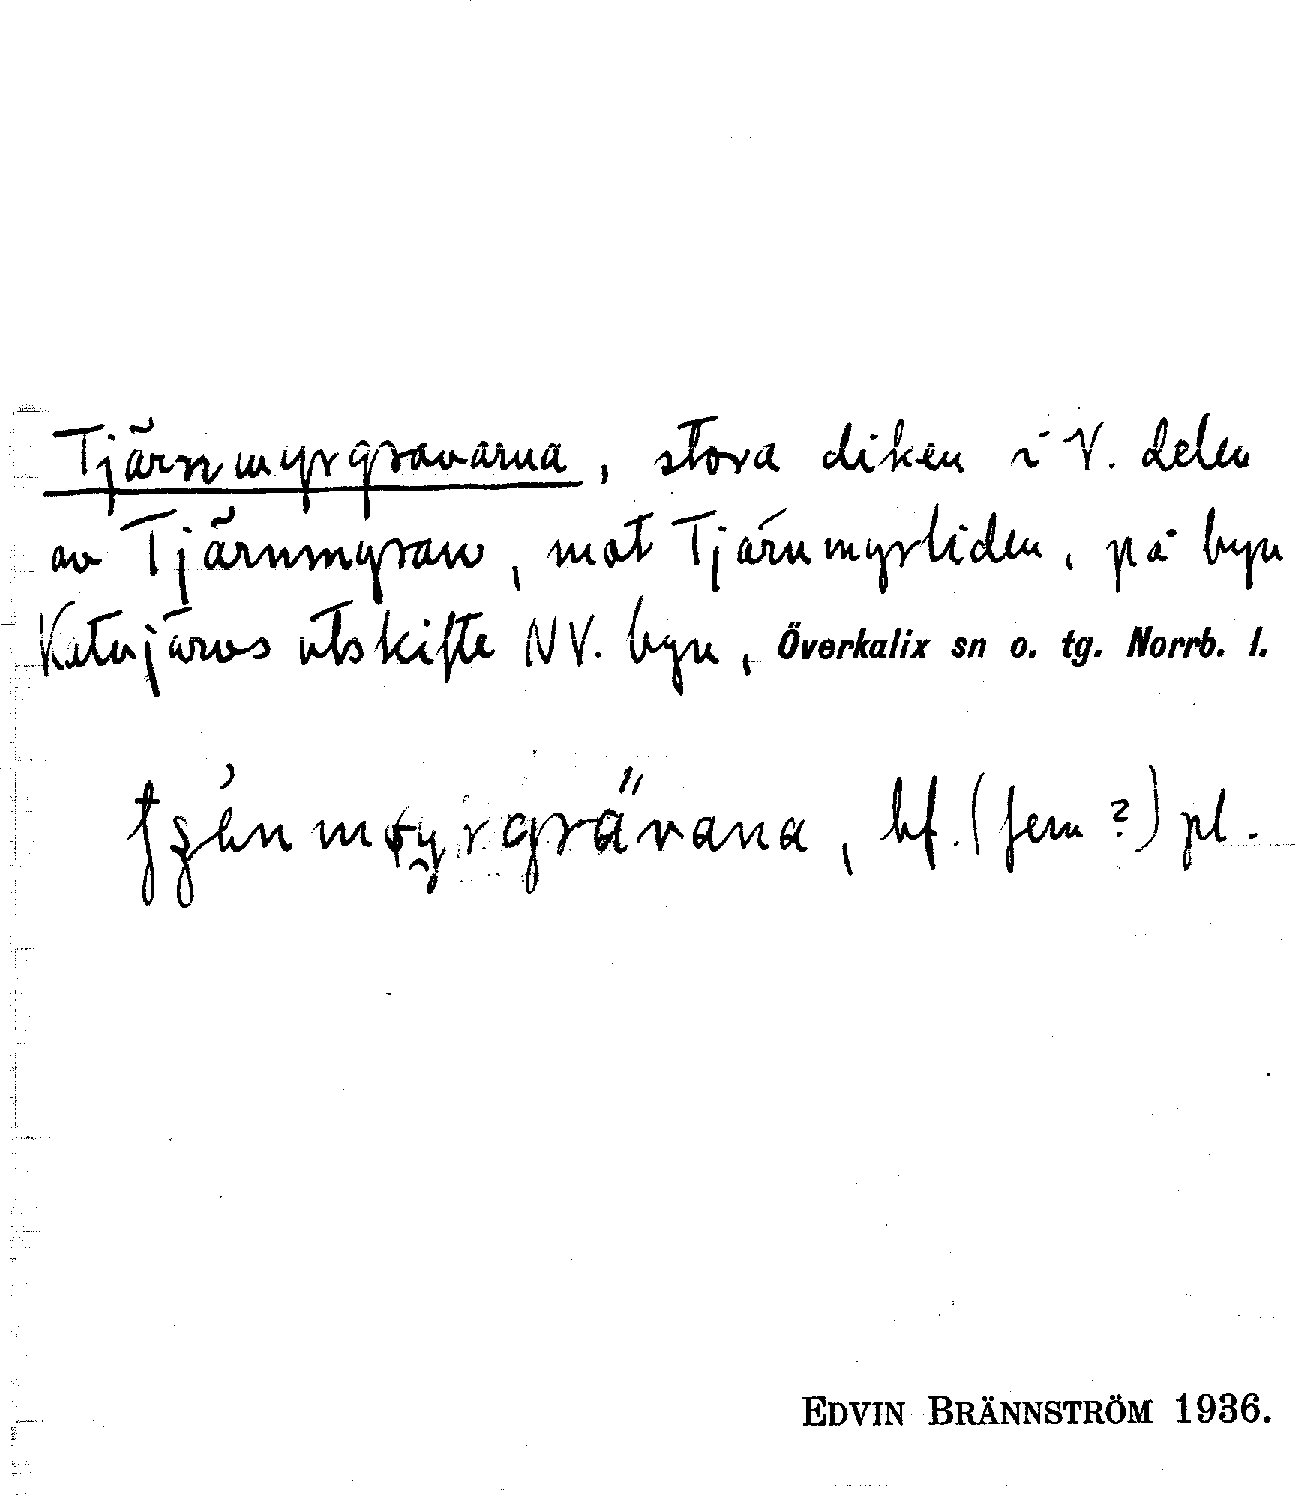 Tjärnmyrgravarna, stora diken i V. delen
av Tjärnmyran, mot Tjärnmyrliden, på byn
Katajärvs utskifte NV. byn, Överkalix sn o. tg. Norrb. l.
bf. (fem?) pl.
EDVIN BRÄNNSTRÖM 1936.